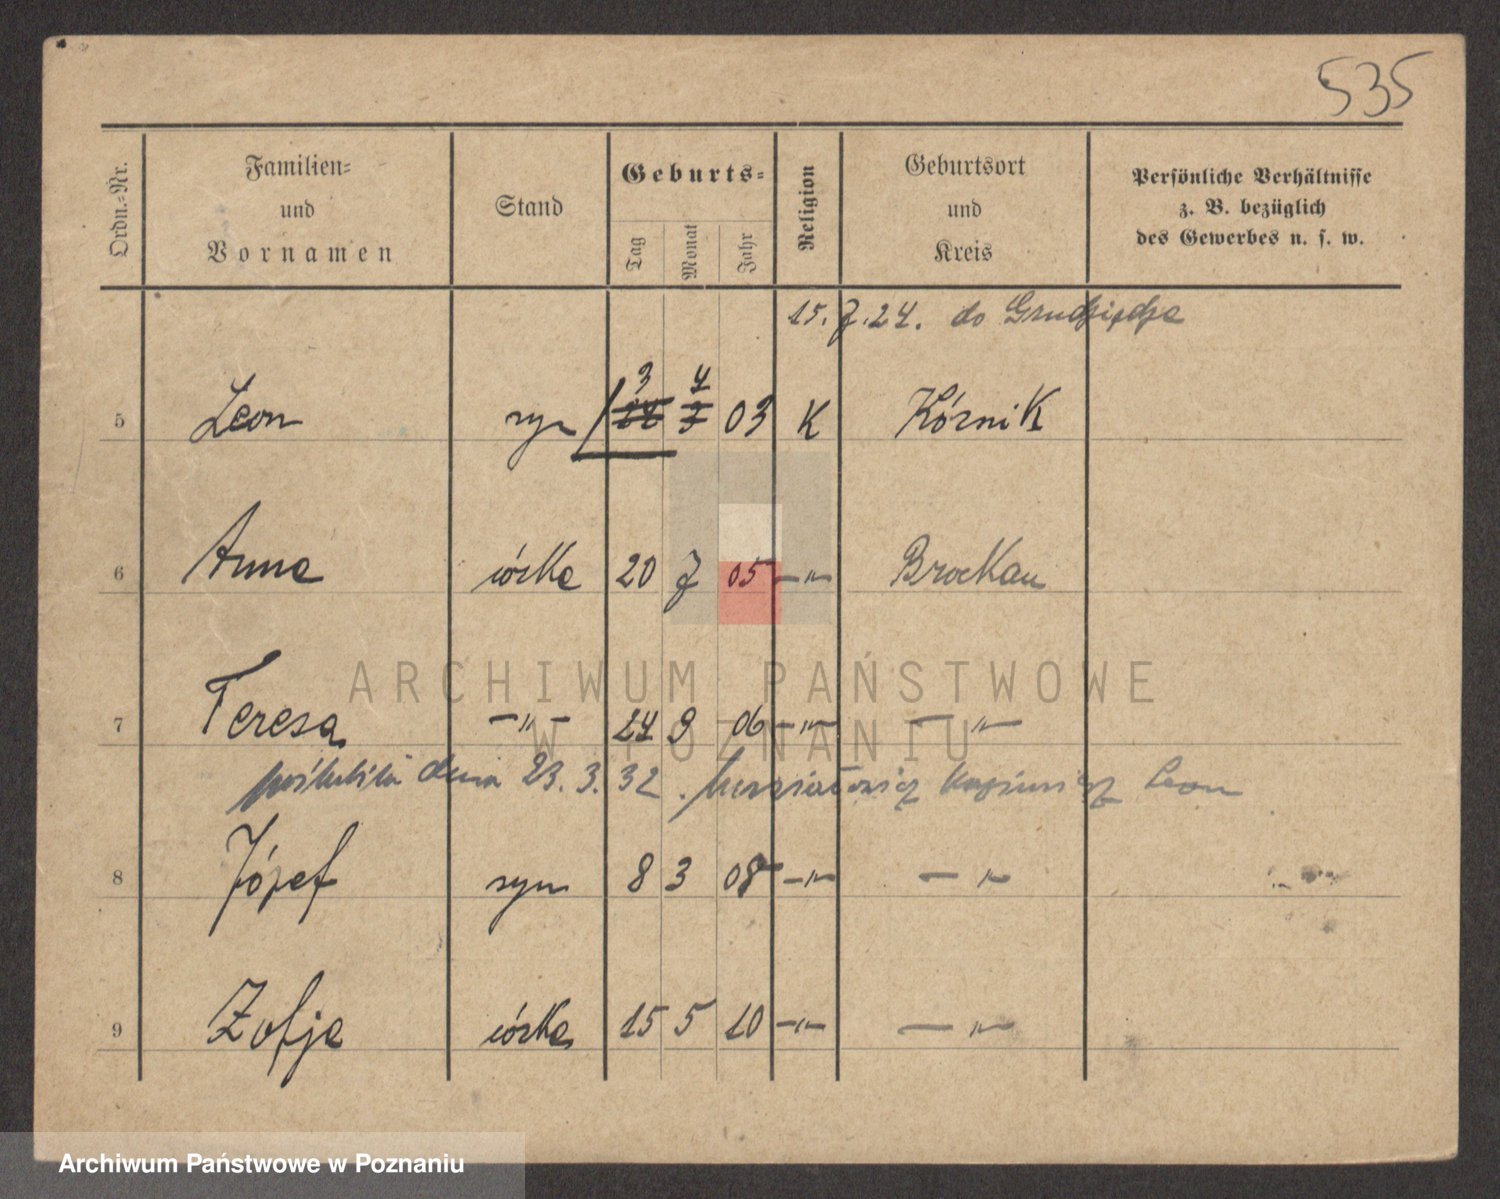 535
Ordn.-Nr.
Familien-
und
Vornamen
Stand
Geburts-
Tag
Monat
Jahr
Religion
Geburtsort
und
Kreis
Persönliche Verhältnisse
z. B. bezüglich
des Gewerbes u. s. w.
15. 7. 24. do Grudziądza
3 4
5 Leon syn 7 03 K Kórnik
6 Anna córka 20 7 05 -"- Brockau
7 Teresa -"- 24 9 06 -"- -"-
poślubiła dnia 23. 3. 32. Leon
8 Józef syn 8 3 08 -"- -"-
9 Zofja córka 15 5 10 -"- -"-
ARCHIWUM PAŃSTWOWE
W POZNANIU
Archiwum Państwowe w Poznaniu